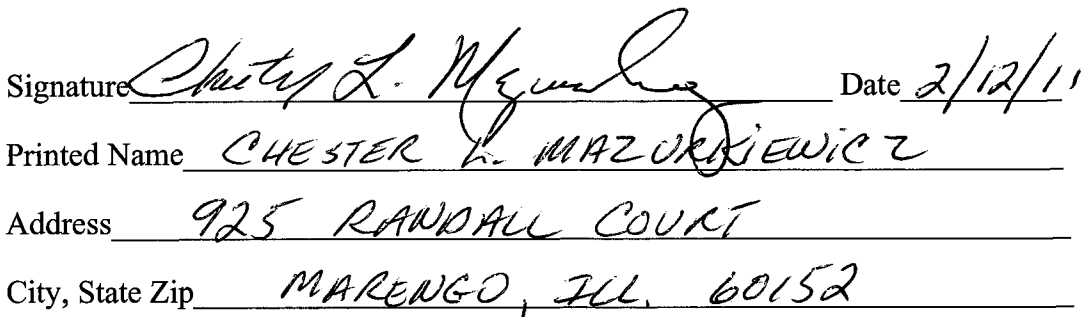 Signature Chester L. Mazurkiewicz Date 2/12/11
Printed Name CHESTER L. MAZURKIEWICZ
Address 925 RANDALL COURT
City, State Zip MARENGO, ILL. 60152